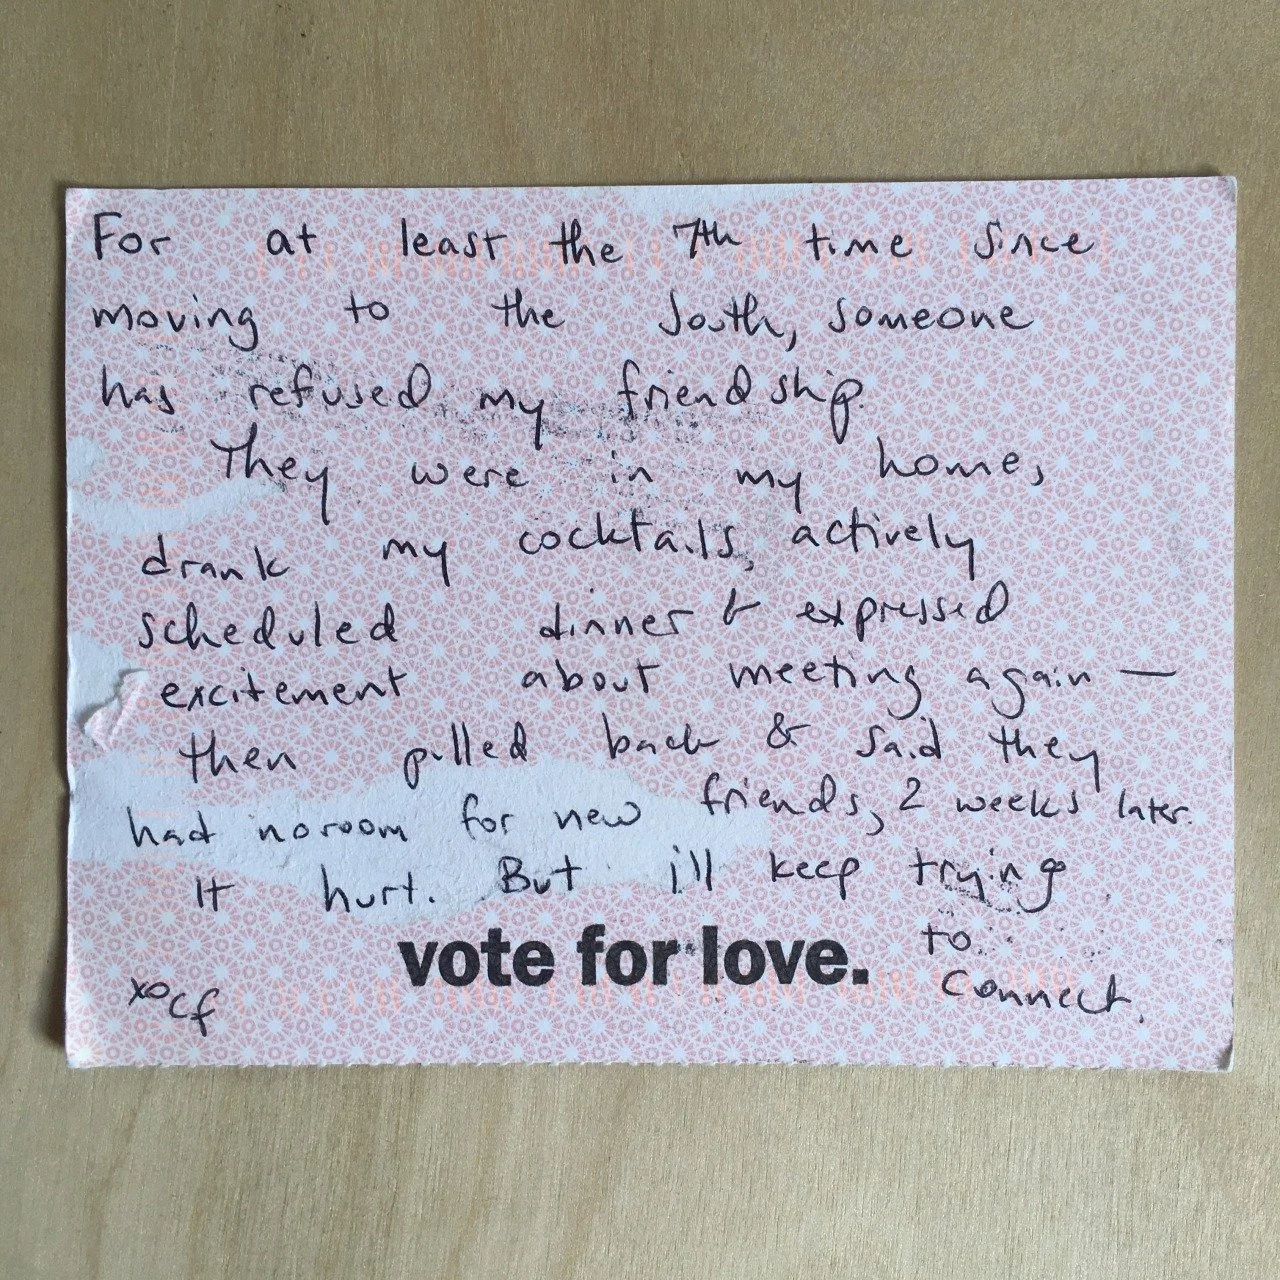 For at least the 7th time since
moving to the South, someone
has refused my friendship.
They were in my home,
drank my cocktails, actively
scheduled dinner & expressed
excitement about meeting again —
then pulled back & said they
had no room for new friends, 2 weeks later.
It hurt. But i'll keep trying
to
connect.
vote for love.
xocf